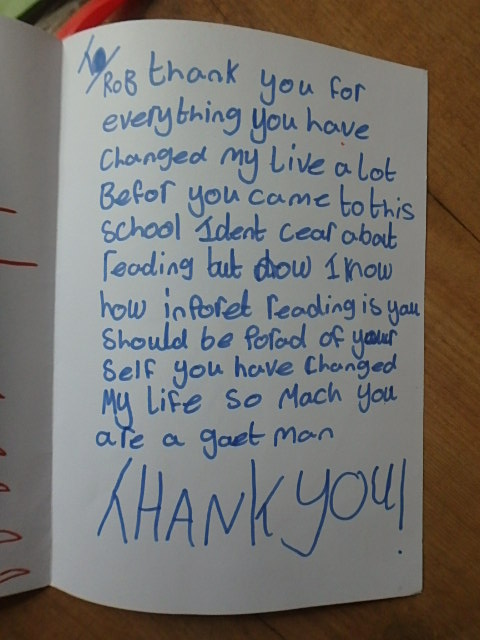 To
Rob thank you for
everything you have
changed my live a lot
Befor you came to this
school I dent cear abat
reading but now I know
how inporet reading is you
should be porad of your
self you have changed
My life so mach you
are a gaet man
THANK YOU!